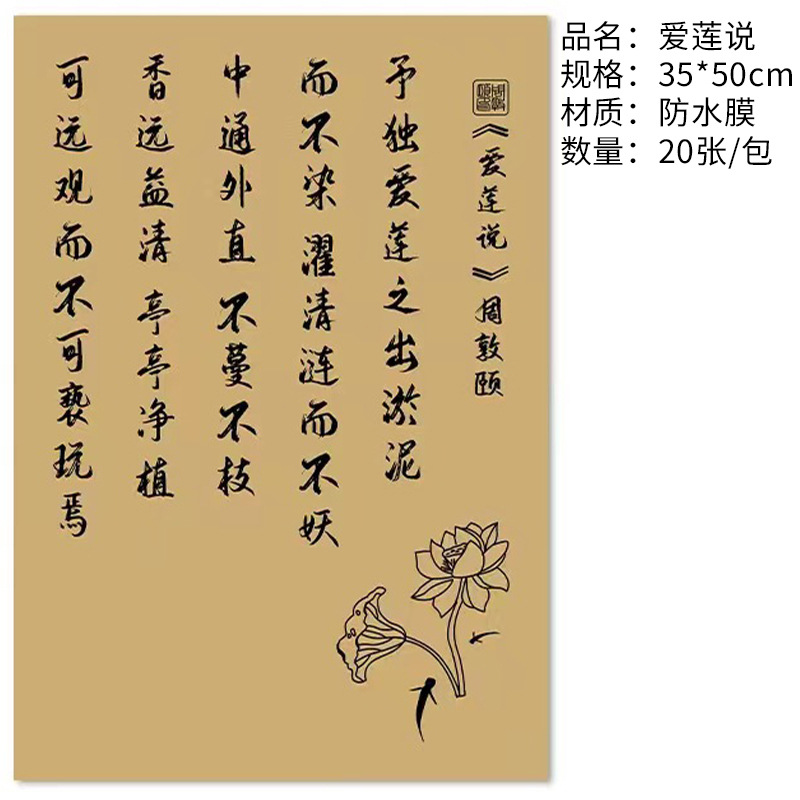 《爱莲说》周敦颐
予独爱莲之出淤泥
而不染濯清涟而不妖
中通外直不蔓不枝
香远益清亭亭净植
可远观而不可亵玩焉
品名：爱莲说
规格：35*50cm
材质：防水膜
数量：20张/包